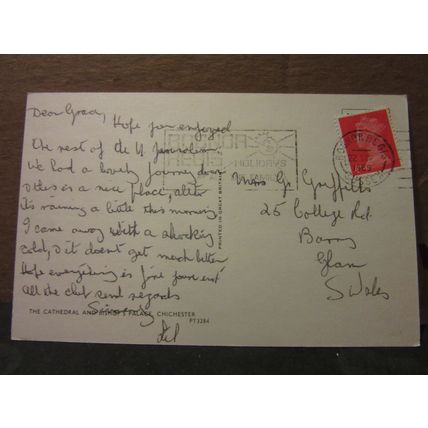 Dear Grace,
Hope you enjoyed
the rest of the
We had a lovely journey down
& this is a nice place, altho
its raining a little this morning
I came away with a shocking
cold, & it doesn't get much better
Hope everything is fine your end
all the club send regards
Sincerely
THE CATHEDRAL AND BISHOP'S PALACE, CHICHESTER
PT3284
PRINTED IN GREAT BRITAIN
BOGNOR
REGIS
HOLIDAYS
FAMILY
BOGNOR REGIS
Miss Gr Griffiths
25 College Rd.
Barry
Glam
S Wales